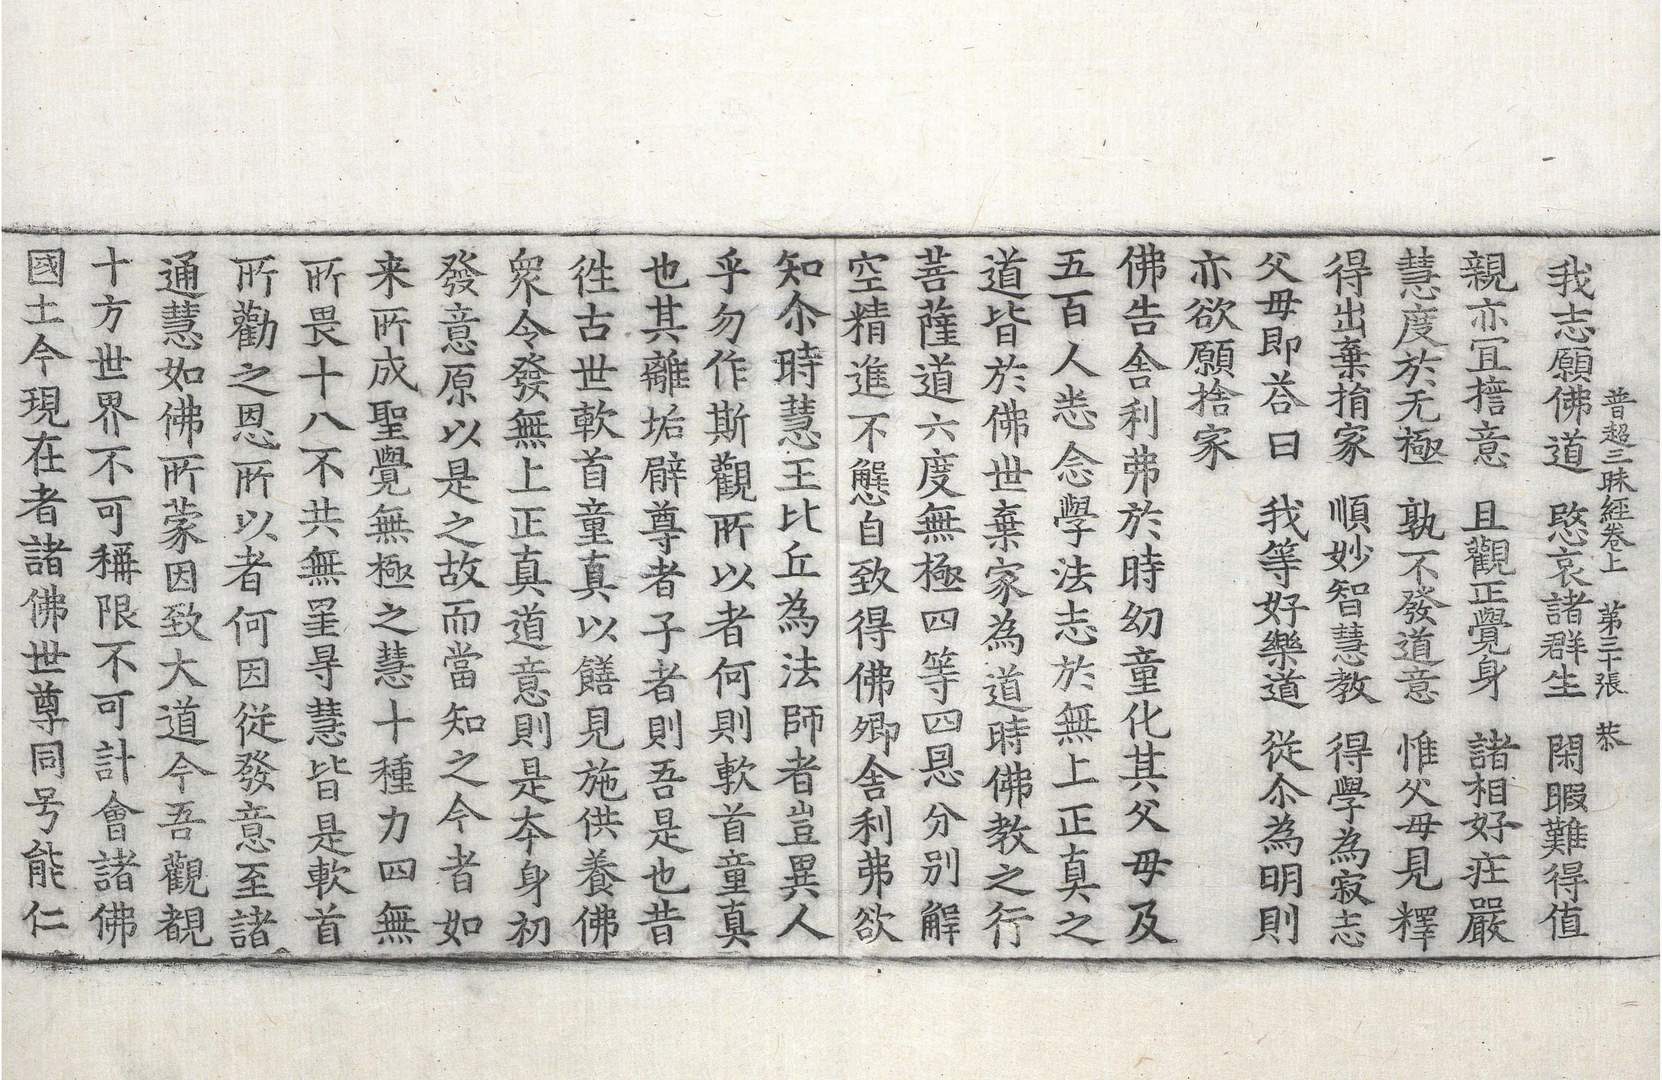 普超三昧經卷上　第三十張　恭
我志願佛道　愍哀諸群生　閑暇難得值
親亦宜擔意　且觀正覺身　諸相好莊嚴
慧度於无極　孰不發道意　惟父母見釋
得出棄捐家　順妙智慧教　得學為寂志
父母即荅曰　我等好樂道　從尒為明則
亦欲願捨家
佛告舍利弗於時幼童化其父母及
五百人悉念學法志於無上正真之
道皆於佛世棄家為道時佛教之行
菩薩道六度無極四等四恩分別解
空精進不懈自致得佛卿舍利弗欲
知尒時慧王比丘為法師者豈異人
乎勿作斯觀所以者何則軟首童真
也其離垢臂尊者子者則吾是也昔
徃古世軟首童真以饍見施供養佛
衆令發無上正真道意則是夲身初
發意原以是之故而當知之今者如
来所成聖覺無極之慧十種力四無
所畏十八不共無罣㝵慧皆是軟首
所勸之恩所以者何因從發意至諸
通慧如佛所蒙因致大道今吾觀覩
十方世界不可稱限不可計會諸佛
國土今現在者諸佛世尊同号能仁